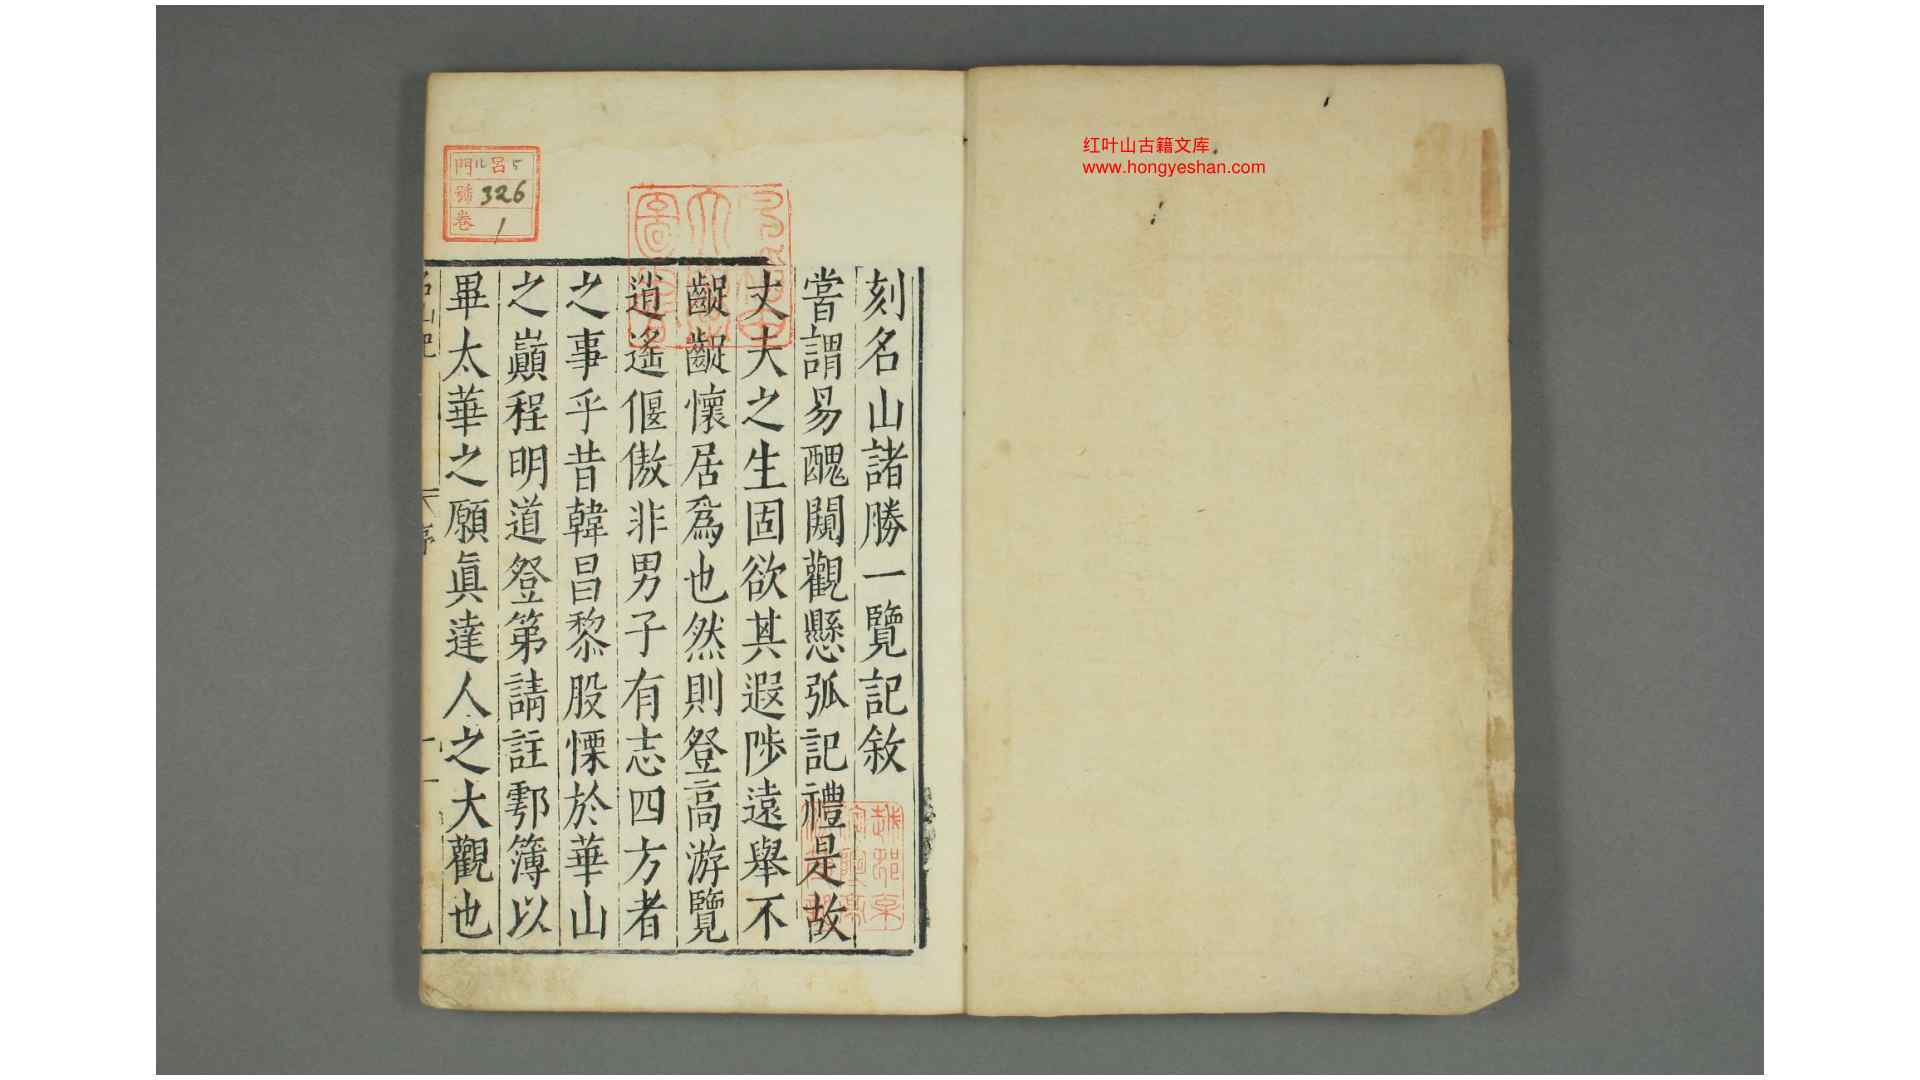 红叶山古籍文库
www.hongyeshan.com
刻名山諸勝一覽記敘
嘗謂易醜闚觀懸弧記禮是故
丈夫之生固欲其遐陟遠舉不
齪齪懷居爲也然則登高游覽
逍遙偃傲非男子有志四方者
之事乎昔韓昌黎股慄於華山
之巓程明道登第請註鄠簿以
畢太華之願眞達人之大觀也
門 ル 呂 5
號 326
卷 1